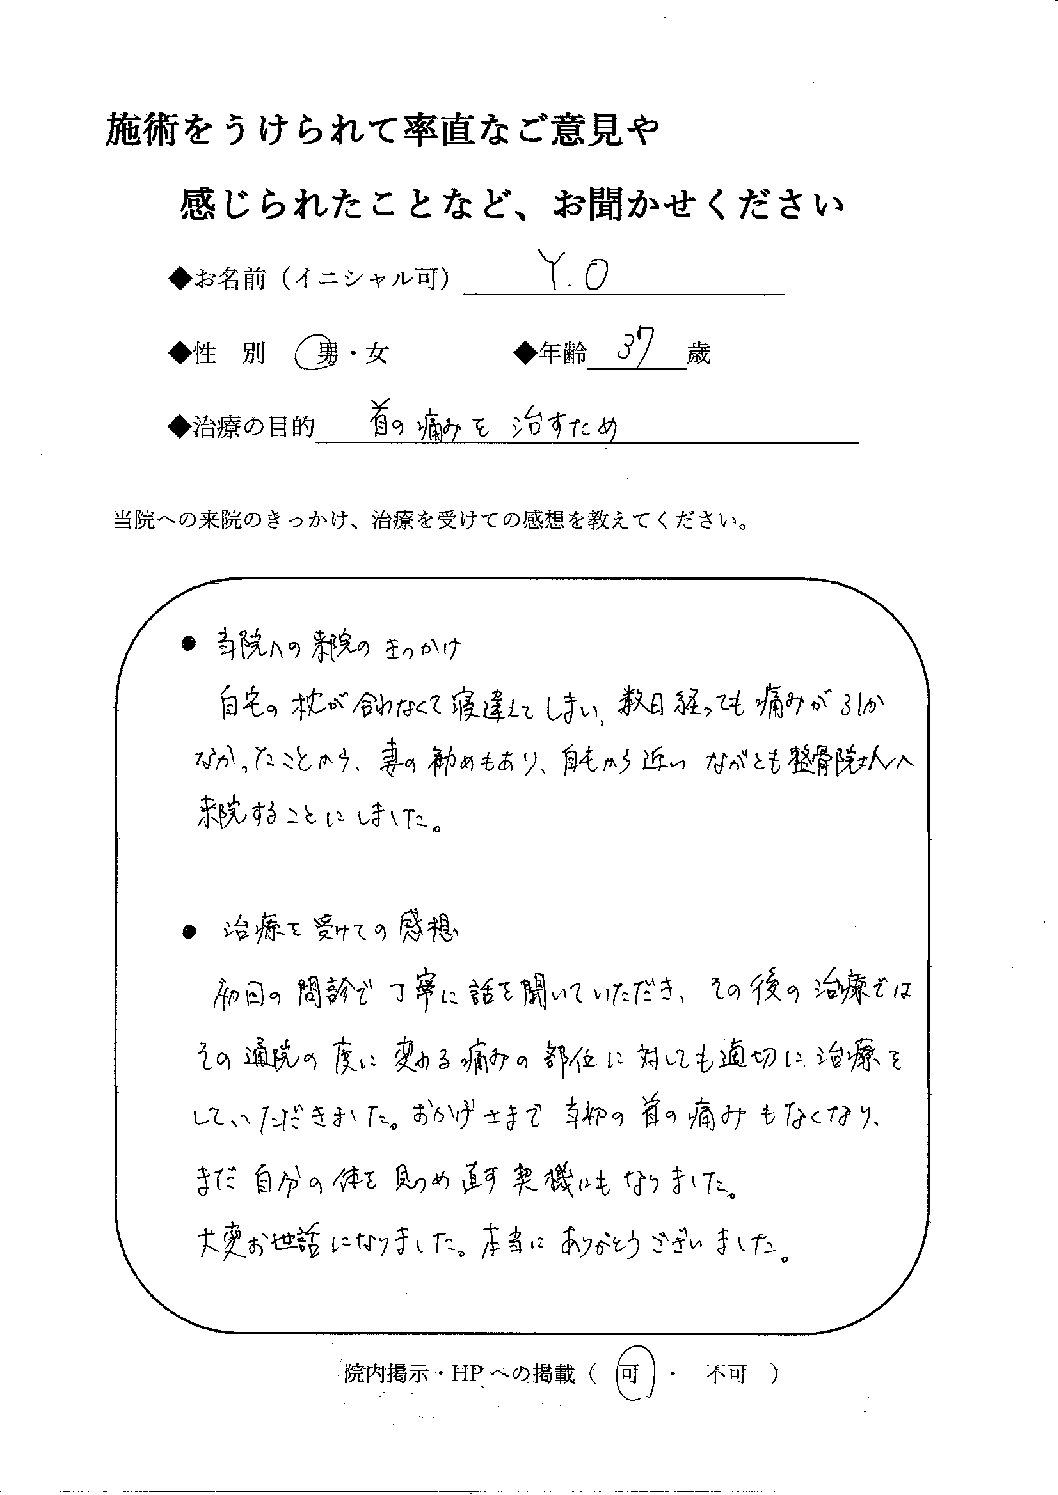 施術をうけられて率直なご意見や
感じられたことなど、お聞かせください
◆お名前（イニシャル可） Y.O
◆性　別　男・女　◆年齢 37 歳
◆治療の目的 首の痛みを治すため
当院への来院のきっかけ、治療を受けての感想を教えてください。
● 当院への来院のきっかけ
自宅の枕が合わなくて寝違えてしまい、数日経っても痛みが引か
なかったことから、妻の勧めもあり、自宅から近いながとも整骨院さんへ
来院することにしました。
● 治療を受けての感想
初回の問診で丁寧に話を聞いていただき、その後の治療では
その通院の度に変わる痛みの部位に対しても適切に治療を
していただきました。おかげさまで当初の首の痛みもなくなり、
まだ自分の体を見つめ直す契機にもなりました。
大変お世話になりました。本当にありがとうございました。
院内掲示・HPへの掲載（ 可 ・ 不可 ）